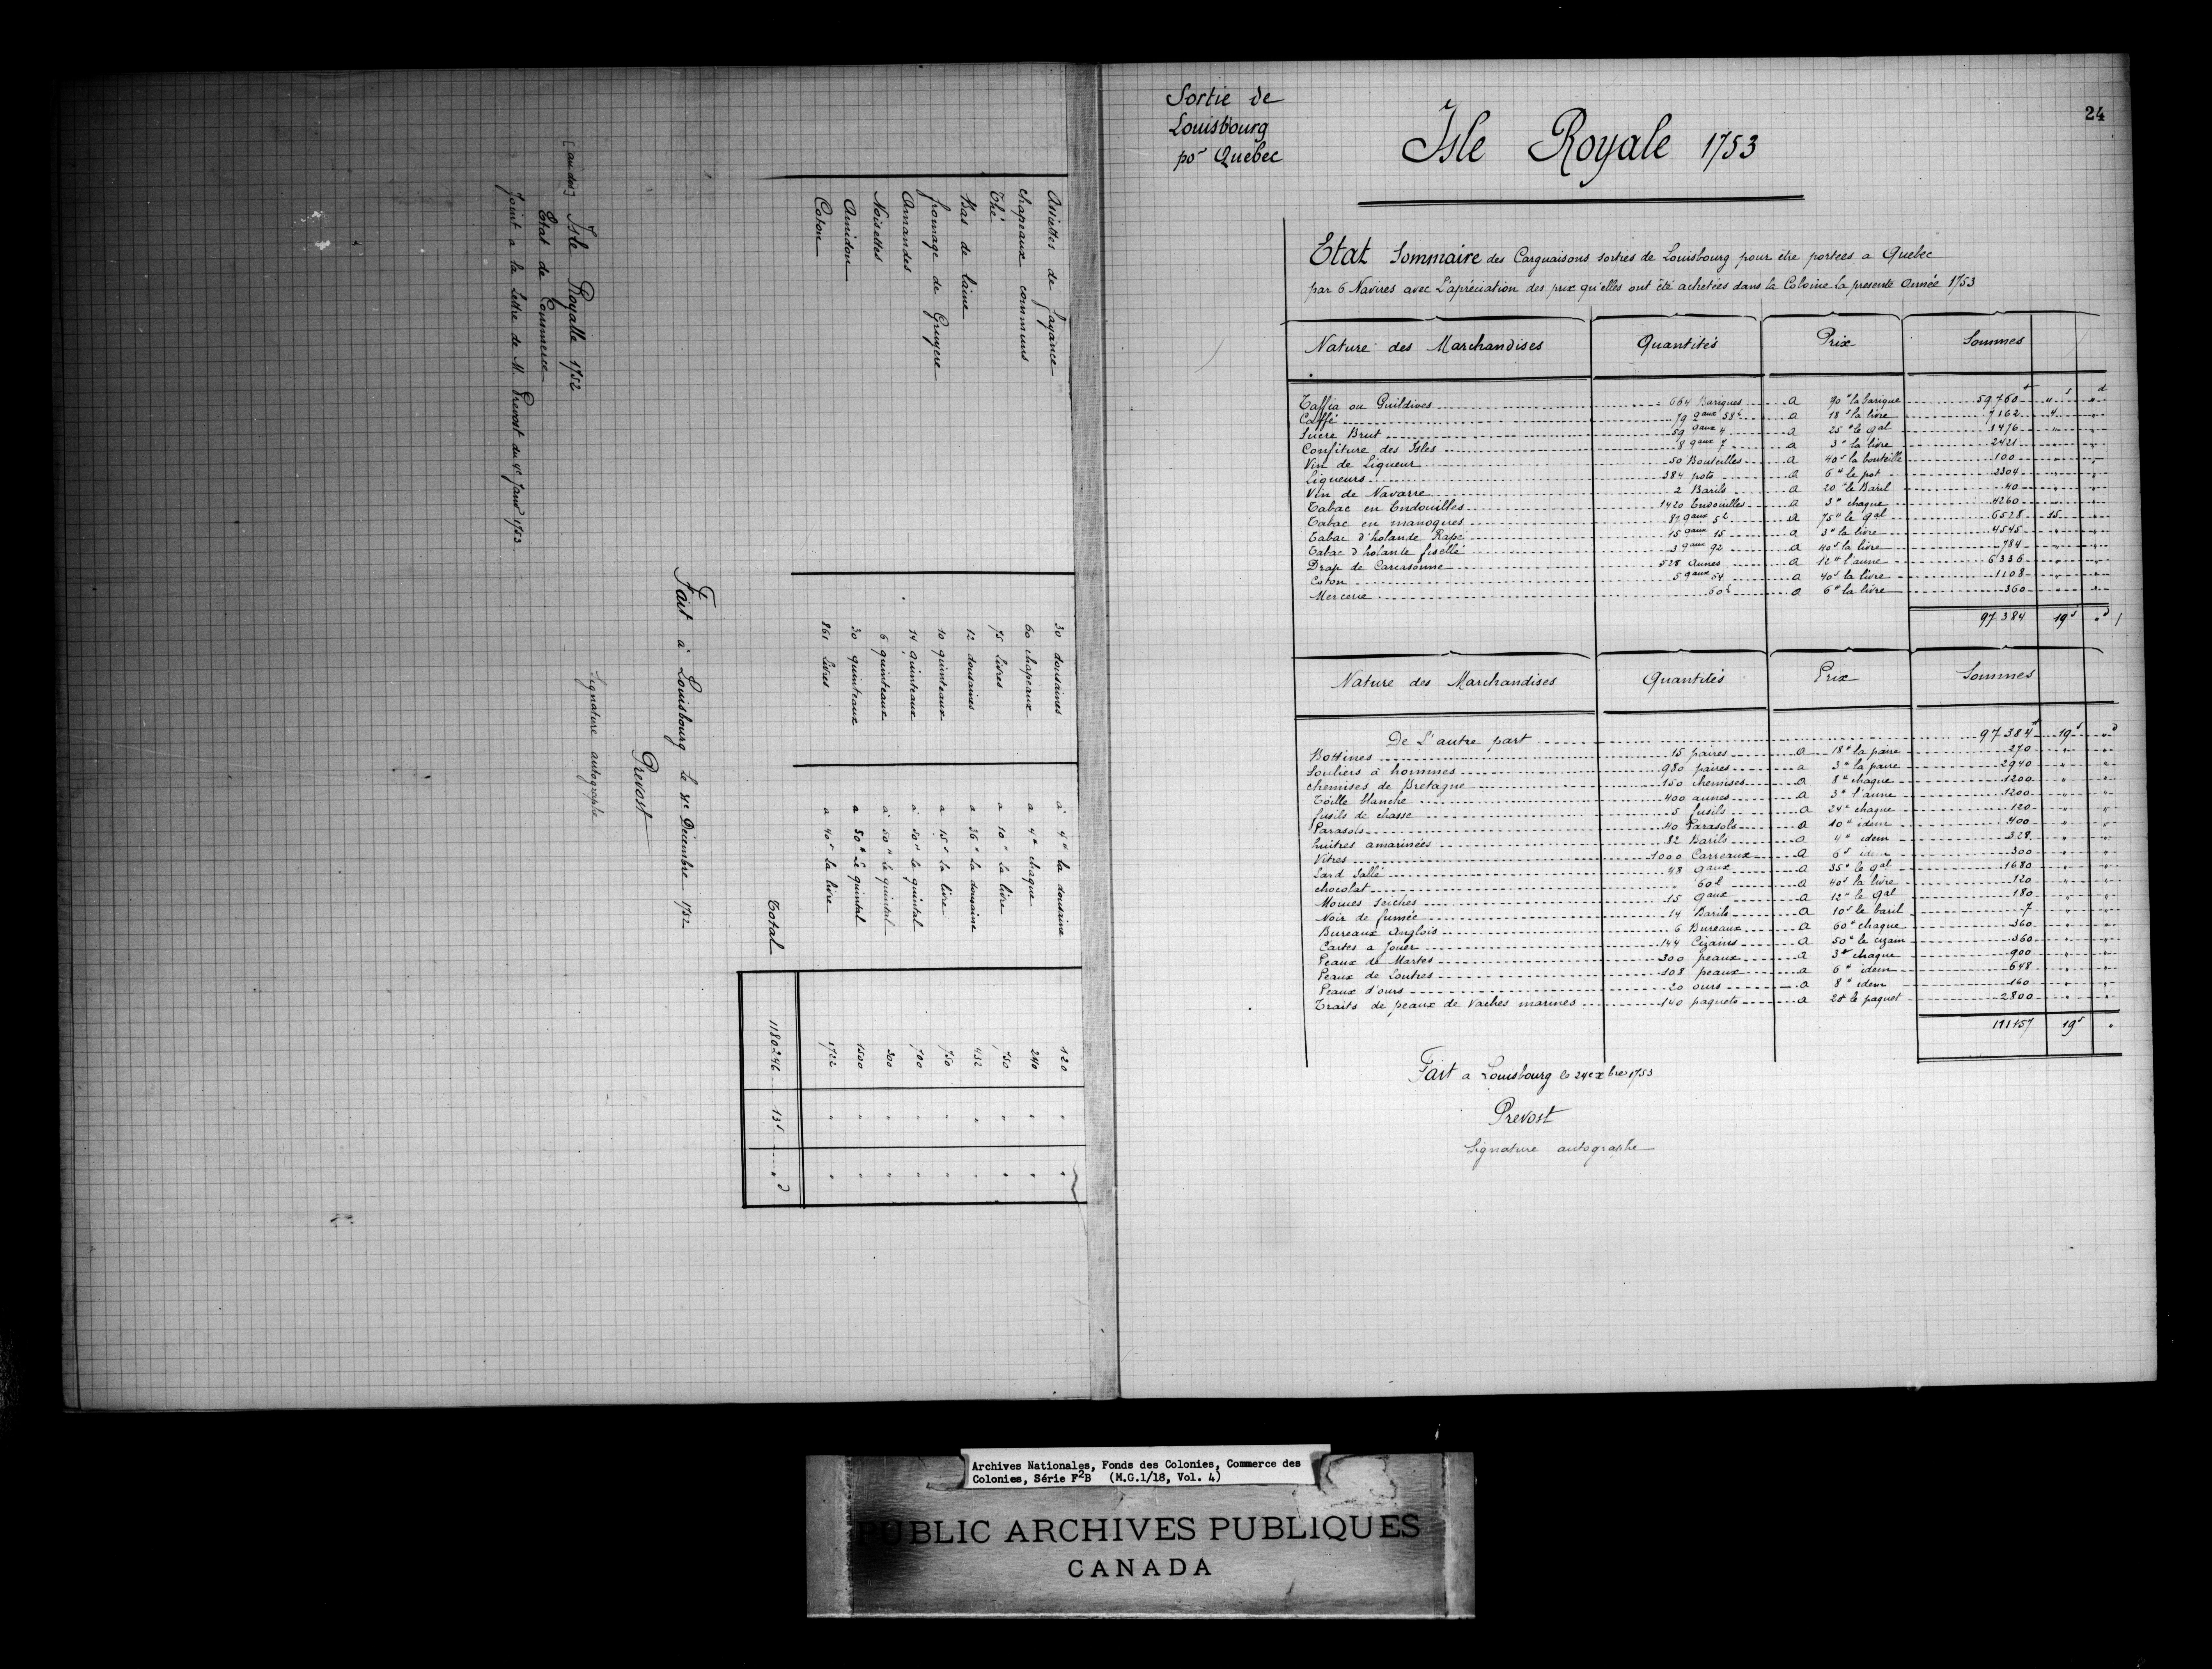 Assiettes de fayance 30 dousaines à 4# la dousaine 120 " "
chapeaux communs 60 chapeaux a 4# chaque 240 " "
Thé 75 Livres a 10# la livre 750 " "
Bas de laine 12 dousaines a 36# la dousaine 432 " "
fromage de Gruyere 10 quinteaux a 15s la livre 750 " "
Amandes 14 quinteaux à 50# le quintal 700 " "
Noisettes 6 quinteaux à 50# le quintal 300 " "
Amidon 30 quinteaux a 50# Le quintal 1500 " "
Coton 861 Livres a 40s la livre 1722 " "
Total 1180246 13s " d
Fait à Louisbourg le 31e Décembre 1752
Prevost
Signature autographe
[au dos] Isle Royalle 1752
Etat de Commerce
Joint a la Lettre de M. Prevost du 4e Janer 1753
24
Sortie de
Louisbourg
por Quebec
Isle Royale 1753
Etat Sommaire des Carguaisons sorties de Louisbourg pour être portées a Quebec
par 6 Navires avec L'apréciation des prix qu'elles ont été achetées dans la Colonie la presente Année 1753
Nature des Marchandises Quantités Prix Sommes
Taffia ou Guildives 664 Bariques a 90# la barique 59760# " s " d
Caffé 79 qaux 58L a 18s la livre 7162 4 "
Sucre Brut 59 qaux 4 a 25# le qal 1476 " "
Confiture des Isles 8 qaux 7 a 3# la livre 2421 " "
Vin de Liqueur 50 Bouteilles a 40s la bouteille 100 " "
Liqueurs 384 pots a 6# le pot 2304 " "
Vin de Navarre 2 Barils a 20# le Baril 40 " "
Tabac en Endouilles 1420 Endouilles a 3# chaque 4260 " "
Tabac en manoques 87 qaux 5L a 75# le qal 6528 15 "
Tabac d'holande Rapé 15 qaux 15 a 3# la livre 4545 " "
Tabac d'holande fiscellé 3 qaux 92 a 40s la livre 784 " "
Drap de Carcasonne 528 Aunes a 12# l'aune 6336 " "
Coton 5 qaux 54 a 40s la livre 1108 " "
Mercerie 60L a 6# la livre 360 " "
97384 19s " d
Nature des Marchandises Quantités Prix Sommes
De L'autre part 97384# 19s " d
Bottines 15 paires a 18# la paire 270 " "
Souliers à hommes 980 paires a 3# la paire 2940 " "
chemises de Bretagne 150 chemises a 8# chaque 1200 " "
Toille blanche 400 aunes a 3# l'aune 1200 " "
fusils de chasse 5 fusils a 24# chaque 120 " "
Parasols 40 Parasols a 10# idem 400 " "
huitres amarinées 82 Barils a 4# idem 328 " "
Vitres 1000 Carreaux a 6s idem 300 " "
Lard Sallé 48 qaux a 35# le qal 1680 " "
chocolat " 60L a 40s la livre 120 " "
Morues Seiches 15 qaux a 12# le qal 180 " "
Noir de fumée 14 Barils a 10s le baril 7 " "
Bureaux Anglois 6 Bureaux a 60# chaque 360 " "
Cartes a Jouer 144 Cizains a 50s le cizain 360 " "
Peaux de Martes 300 peaux a 3# chaque 900 " "
Peaux de Loutres 108 peaux a 6# idem 648 " "
Peaux d'ours 20 ours a 8# idem 160 " "
Traits de peaux de vaches marines 140 paquets a 20# le paquet 2800 " "
111157 19s "
Fait a Louisbourg le 24e xbre 1753
Prevost
Signature autographe
Archives Nationales, Fonds des Colonies, Commerce des
Colonies, Série F2B (M.G.1/18, Vol. 4)
PUBLIC ARCHIVES PUBLIQUES
CANADA